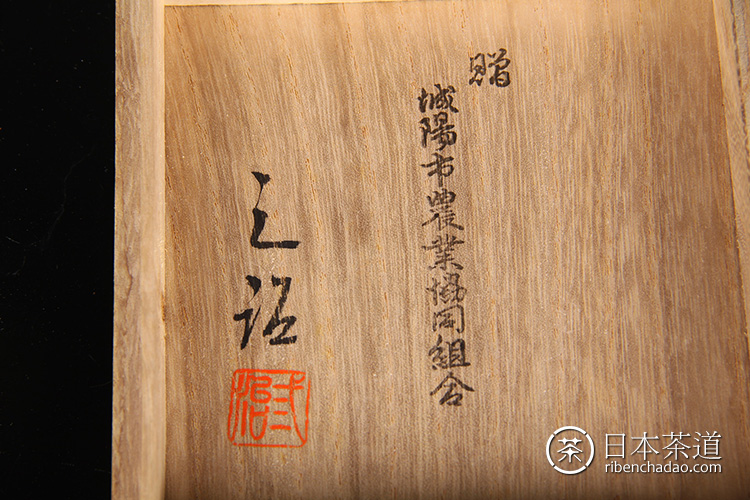 贈
城陽市農業協同組合
茶
日本茶道
ribenchadao.com